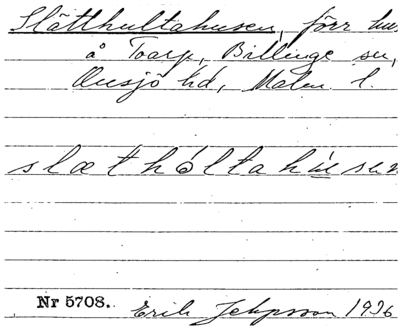 Slätthultahusen, förr hus
å Toarp, Billinge sn,
Onsjö hd, Malm. l.
slæthóltahúsen
Nr 5708. Erik Jeppsson 1936